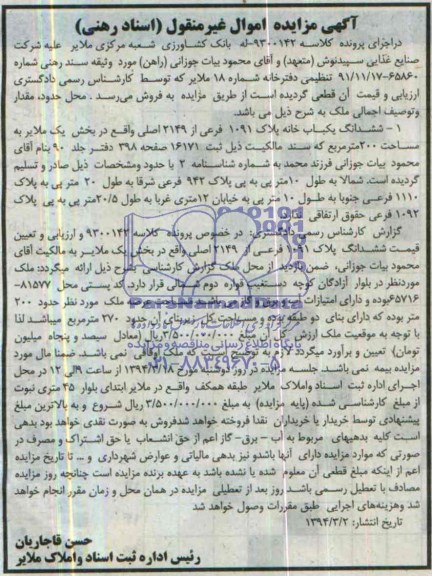 آگهی مزایده اموال غیرمنقول (اسناد رهنی)
دراجرای پرونده کلاسه ۹۳۰۰۱۴۲-له بانک کشاورزی شعبه مرکزی ملایر علیه شرکت
صنایع غذایی سپیدنوش (متعهد) و آقای محمود بیات جوزانی (راهن) مورد وثیقه سند رهنی شماره
۶۵۸۶۰-۹۱/۱۱/۱۷ تنظیمی دفترخانه شماره ۱۸ ملایر که توسط کارشناس رسمی دادگستری
ارزیابی و قیمت آن قطعی گردیده است از طریق مزایده به فروش می‌رسد. محل حدود، مقدار
وتوصیف اجمالی ملک به شرح ذیل می باشد.
۱ - ششدانگ یکباب خانه پلاک ۱۰۹۱ فرعی از ۲۱۴۹ اصلی واقع در بخش یک ملایر به
مساحت ۲۰۰مترمربع که سند مالکیت ذیل ثبت ۱۶۱۷۱ صفحه ۳۹۸ دفتر جلد ۹۰ بنام آقای
محمود بیات جوزانی فرزند محمد به شماره شناسنامه ۲ با حدود ومشخصات ذیل صادر و تسلیم
گردیده است. شمالا به طول ۱۰متر پی به پی پلاک ۹۴۲ فرعی شرقا به طول ۲۰ متر پی به پلاک
۱۱۱۰ فرعی جنوبا به طول ۱۰ متر پی به خیابان ۱۲متری غربا به طول ۲۰/۵متر پی به پی پلاک
۱۰۹۲ فرعی حقوق ارتفاقی ندارد
گزارش کارشناس رسمی دادگستری: در خصوص پرونده کلاسه ۹۳۰۰۱۴۲ و ارزیابی و تعیین
قیمت ششدانگ پلاک ۱۰۹۱ فرعی از ۲۱۴۹ اصلی واقع در بخش یک ملایر به مالکیت آقای
محمود بیات جوزانی، ضمن بازدید از محل ملک گزارش کارشناسی بشرح ذیل ارائه میگردد: ملک
موردنظر در بلوار آزادگان کوچه دستغیب فواره دوم شمالی قرار دارد. کد پستی محل ۸۱۵۷۷-
۶۵۷۱۶بوده و دارای امتیازات آب برق گاز می باشد. مساحت عرصه ملک مورد نظر حدود ۲۰۰
متر بوده که دارای بنای دو طبقه بوده و مساحت کل زیربنای آن حدود ۲۷۰ مترمربع میباشد لذا
با توجه به موقعیت ملک ارزش کل آن مبلغ ۳/۵۰۰/۰۰۰/۰۰۰ریال (معادل سیصد و پنجاه میلیون
تومان) تعیین و برآورد میگردد لازم به توضیح است که ملک اوقافی نمی باشد. ضمنا مال مورد
مزایده بیمه نمی باشد. جلسه مزایده در روز دوشنبه مورخ ۱۳۹۴/۳/۱۸ از ساعت ۹الی ۱۲ در محل
اجرای اداره ثبت اسناد واملاک ملایر طبقه همکف واقع در ملایر ابتدای بلوار ۴۵ متری نبوت
از مبلغ کارشناسی شده (پایه مزایده) به مبلغ ۳/۵۰۰/۰۰۰/۰۰۰ ریال شروع و به بالاترین مبلغ
پیشنهادی توسط خریدار یا خریداران نقدا فروخته خواهد شدفروش به صورت نقدی خواهد بود بدهی
است کلیه بدهیهای مربوط به آب - برق- گاز اعم از حق انشعاب یا حق اشتراک و مصرف در
صورتی که مورد مزایده دارای آنها باشدو نیز بدهی مالیاتی و عوارض شهرداری و ... تا تاریخ مزایده
اعم از اینکه مبلغ قطعی آن معلوم شده یا نشده باشد به عهده برنده مزایده است چنانچه روز مزایده
مصادف با تعطیل رسمی باشد روز بعد از تعطیلی مزایده در همان محل و زمان مقرر انجام خواهد
شد وهزینه‌های اجرایی طبق مقررات وصول خواهد شد
تاریخ انتشار: ۱۳۹۴/۳/۲
حسن قاجاریان
رئیس اداره ثبت اسناد واملاک ملایر
پایگاه اطلاع رسانی مناقصه و مزایده
۰۲۱-۸۸۳۴۹۶۷۰-۵